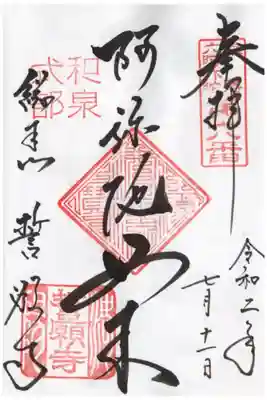 奉拝
令和二年
七月十一日
阿弥陀如来
和泉
式部
総本山 誓願寺
誓願寺